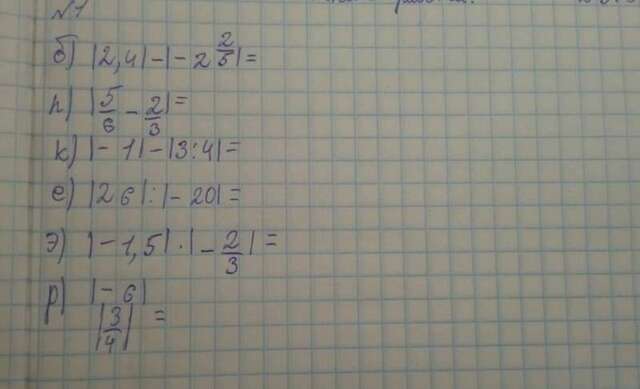 №1
б) |2,4|-|-2 2/5|=
п) |5/6 - 2/3|=
к) |-1|-|3:4|=
е) |26|:|-20|=
э) |-1,5|·|-2/3|=
р) |-6|
|3/4| =